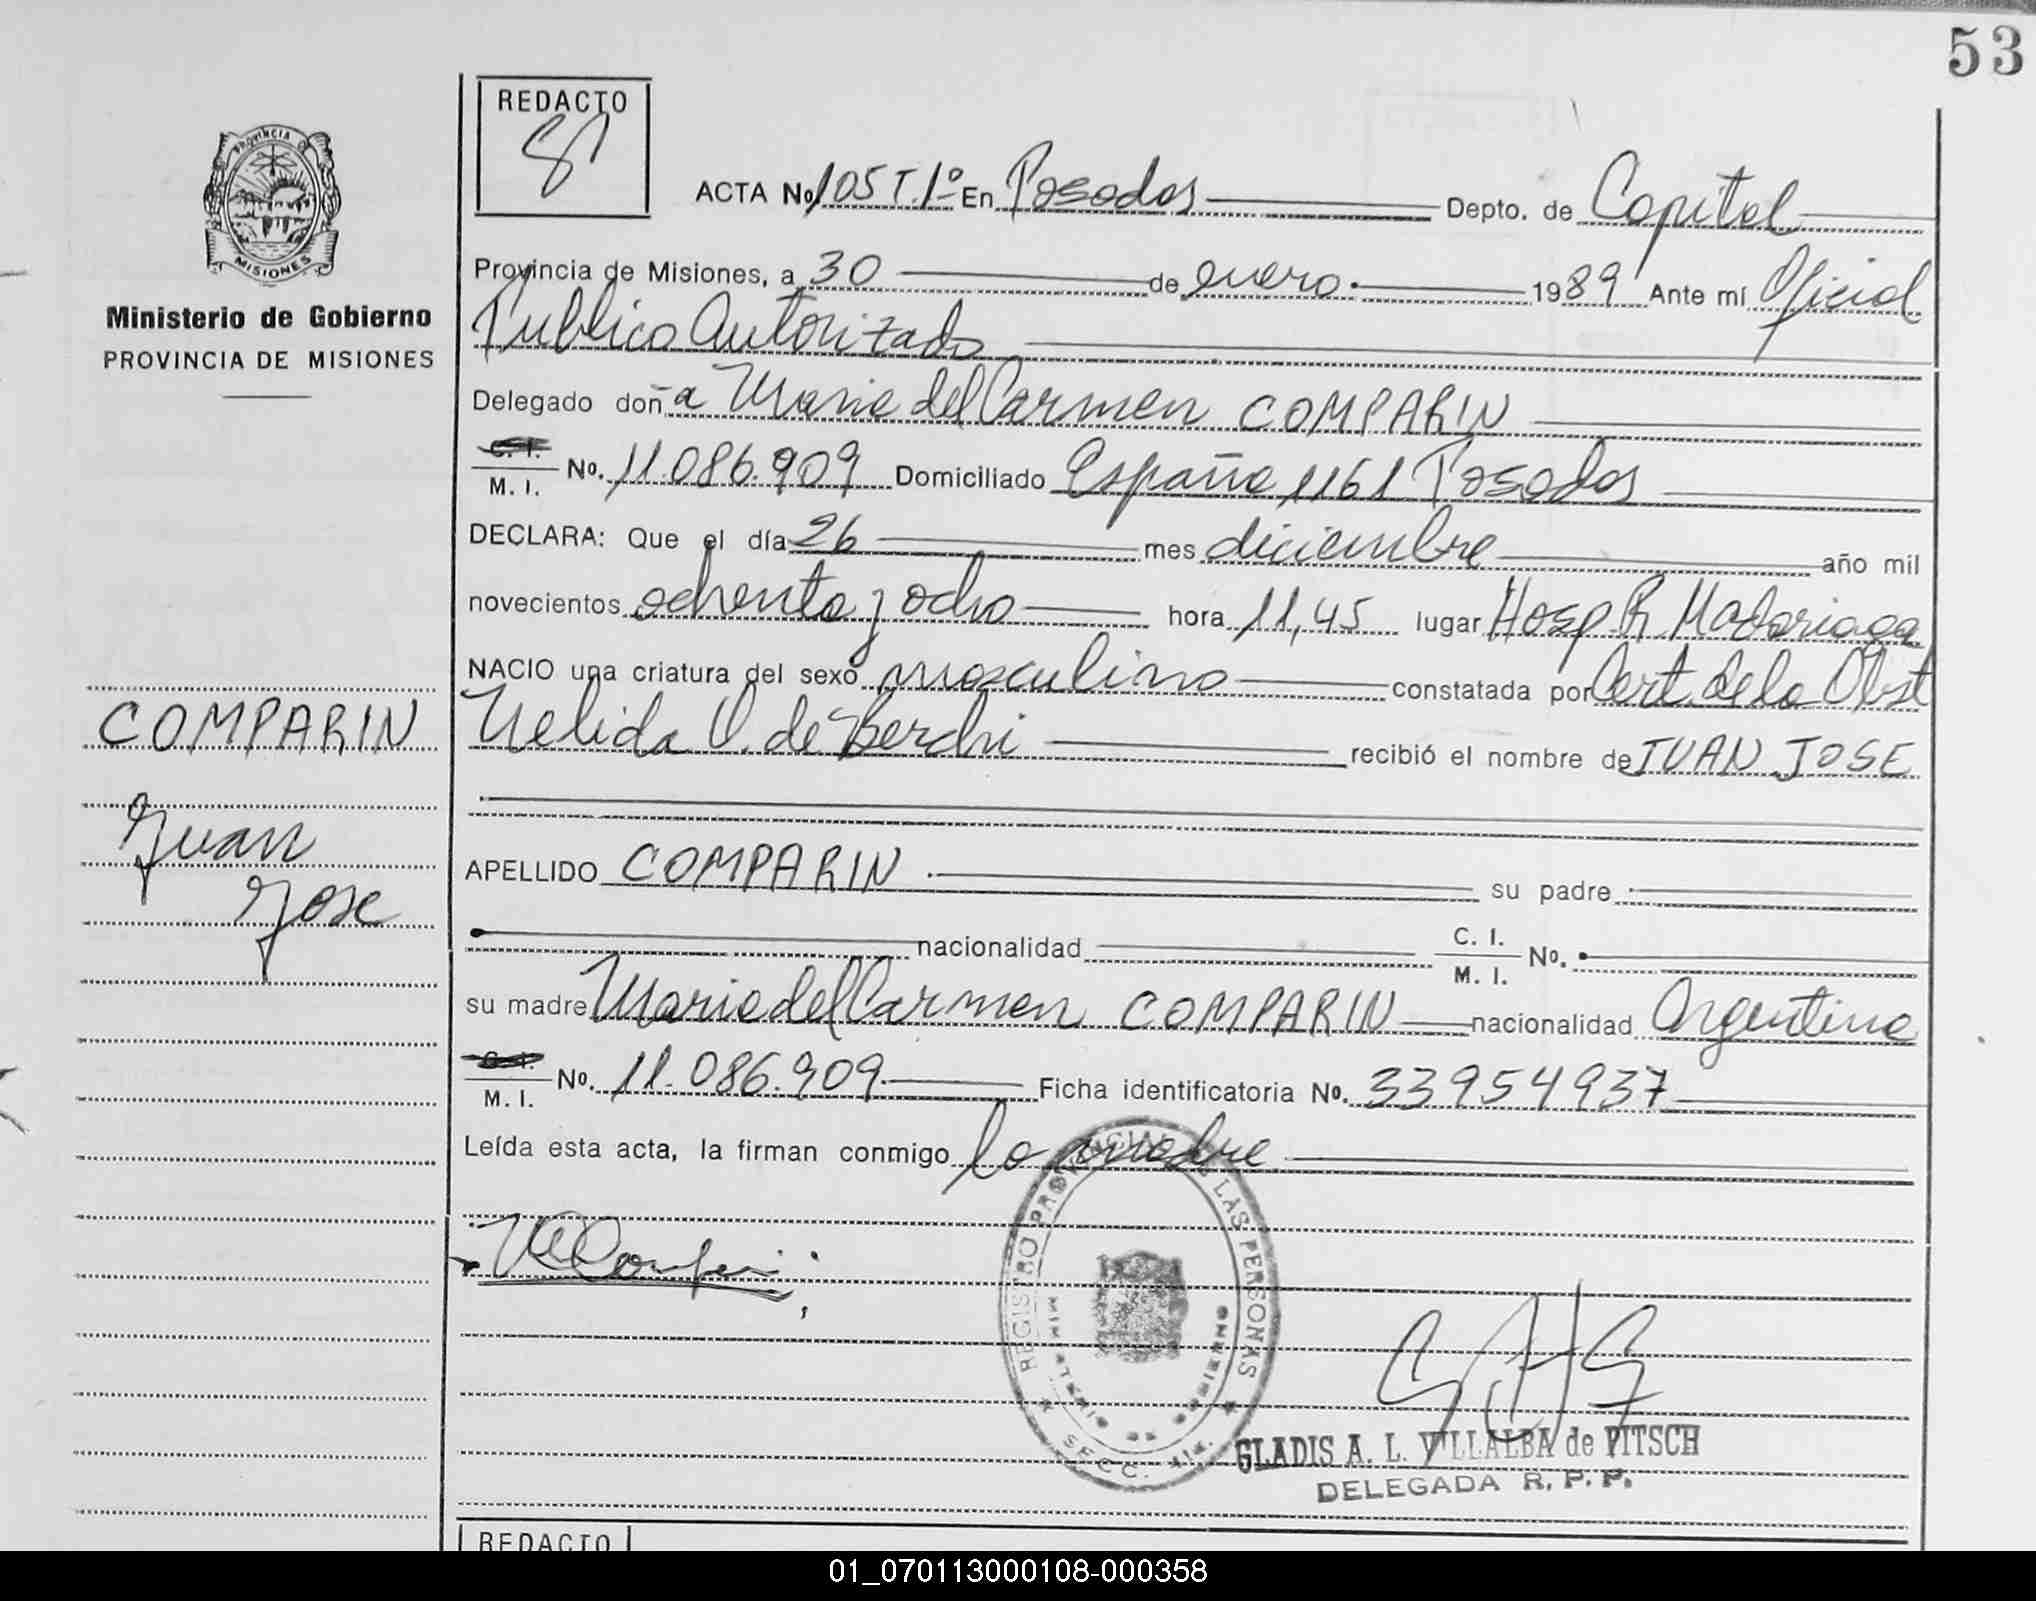 53
REDACTO
ACTA No 105 T.1º En Posadas Depto. de Capital
PROVINCIA
MISIONES
Provincia de Misiones, a 30 de enero 1989 Ante mí Oficial
Ministerio de Gobierno
PROVINCIA DE MISIONES
Publico Autorizado
Delegado doña Maria del Carmen COMPARIN
C. I.
M. I. No. 11.086.909 Domiciliado España 1161 Posadas
DECLARA: Que el día 26 mes diciembre año mil
novecientos ochenta y ocho hora 11,45 lugar Hosp R Madariaga
NACIO una criatura del sexo masculino constatada por Cert. de la Obst
COMPARIN
Nelida V. de Berchi recibió el nombre de JUAN JOSE
Juan
Jose
APELLIDO COMPARIN su padre
nacionalidad C. I.
M. I. No.
su madre Maria del Carmen COMPARIN nacionalidad Argentina
C. I.
M. I. No. 11.086.909 Ficha identificatoria No. 33954937
Leída esta acta, la firman conmigo la madre
REGISTRO PROVINCIAL DE LAS PERSONAS
MINISTERIO DE GOBIERNO
GLADIS A. L. VILLALBA de PITSCH
DELEGADA R. P. P.
REDACTO
01_070113000108-000358